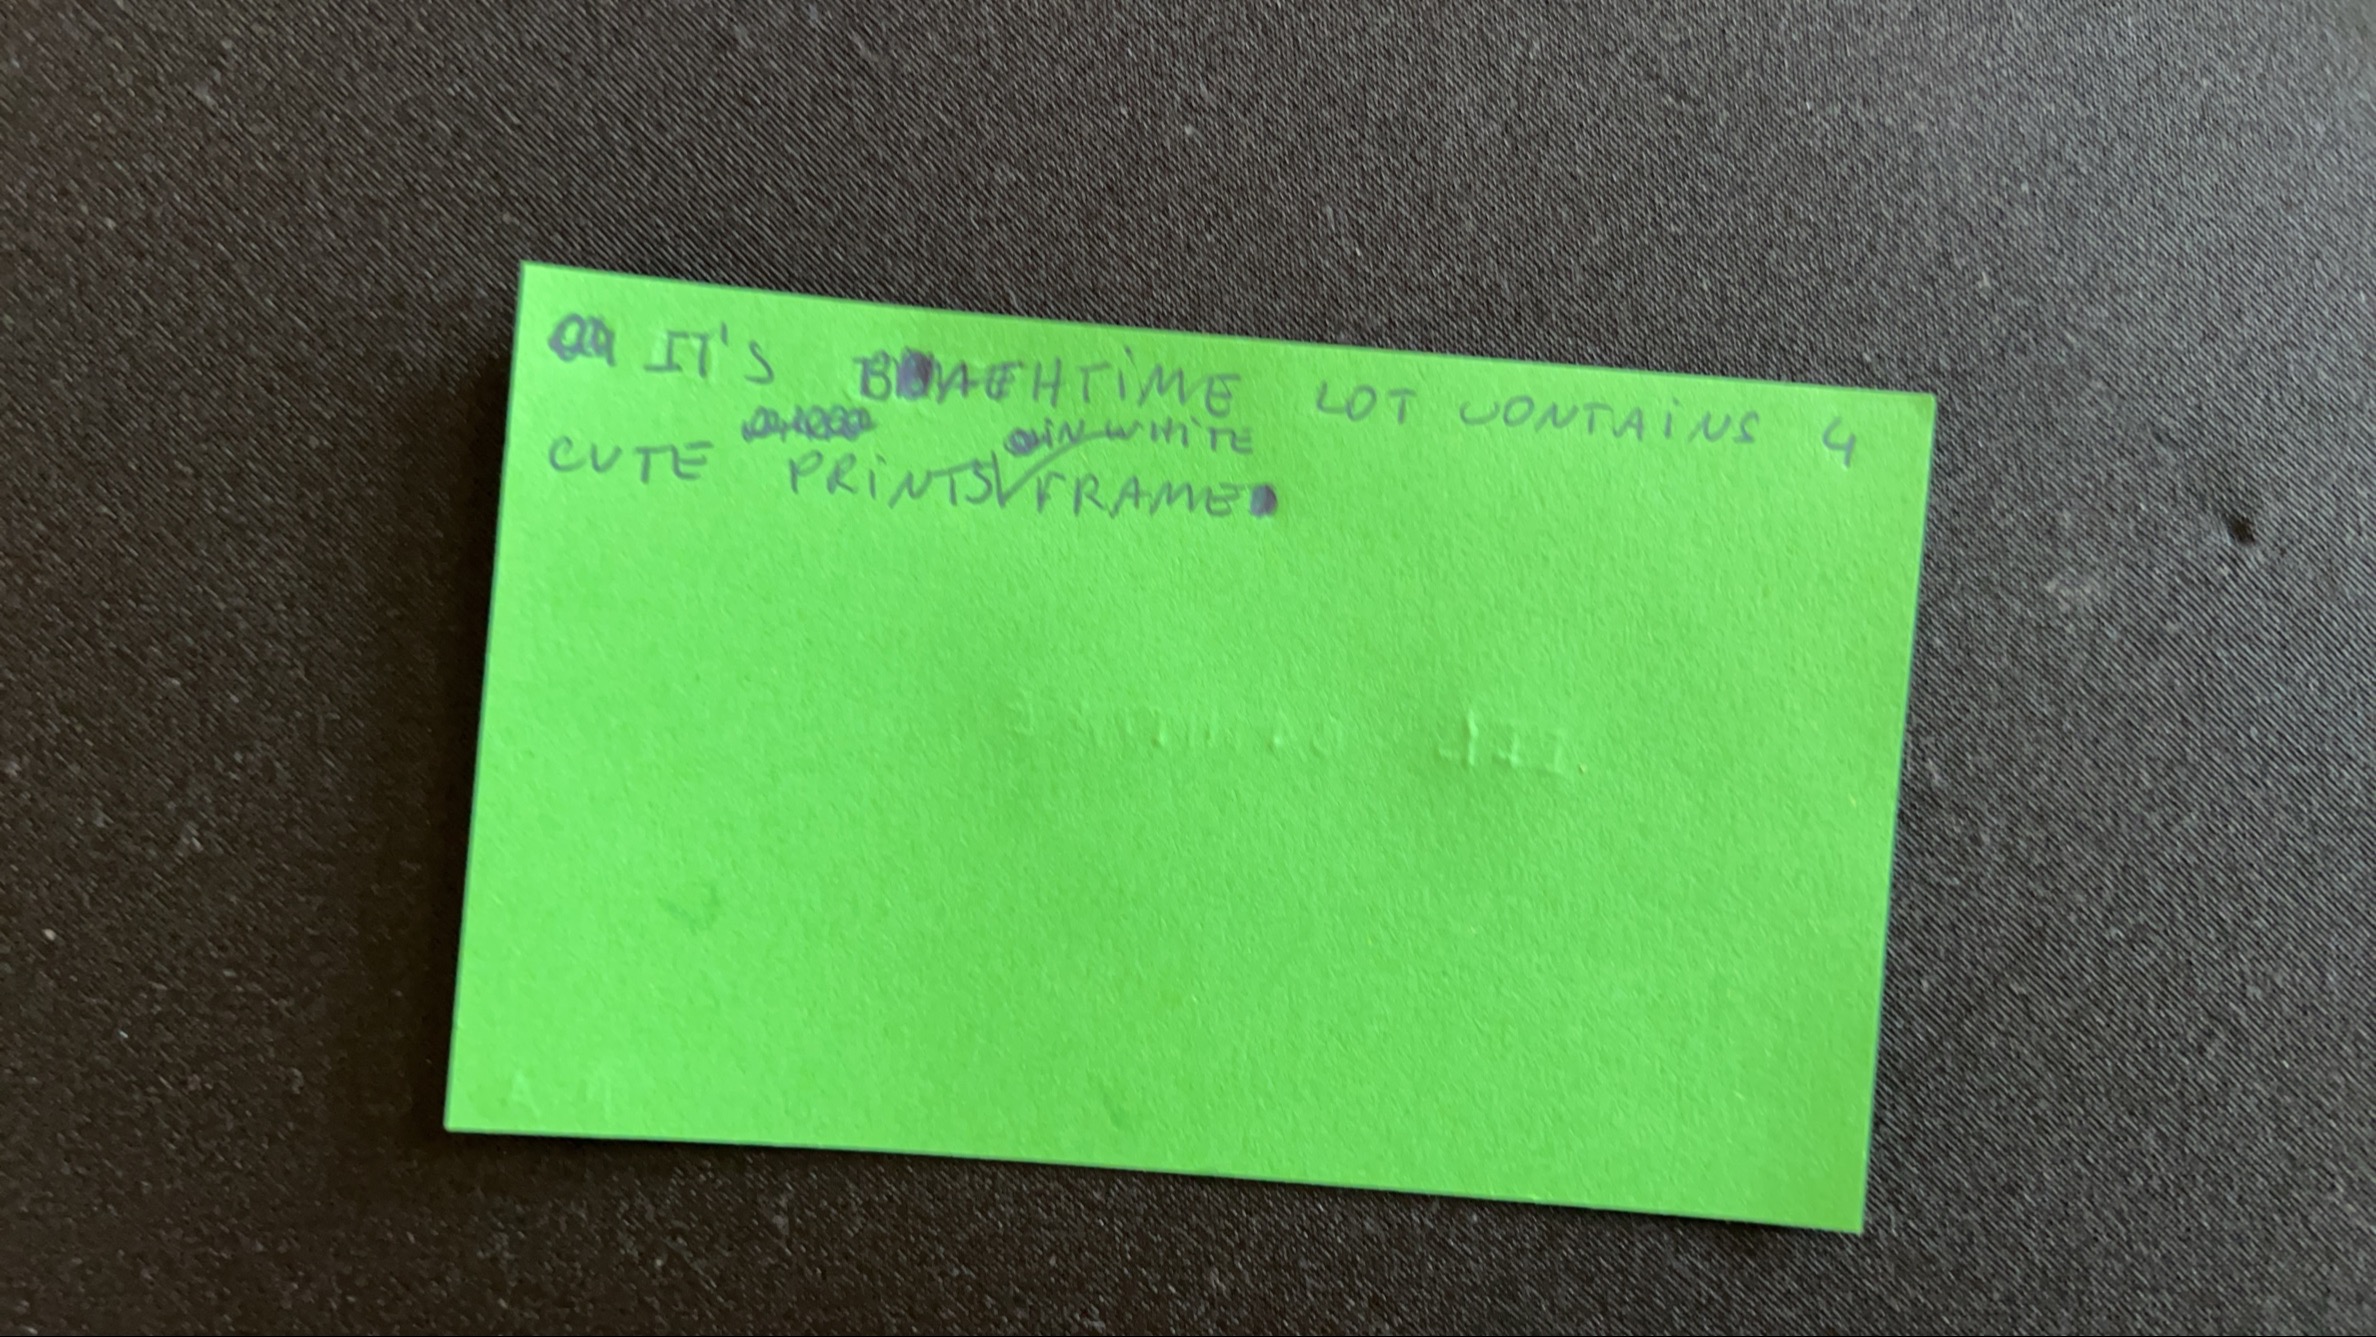 IT'S BAEHTIME LOT CONTAINS 4
CUTE PRINTS IN WHITE FRAME